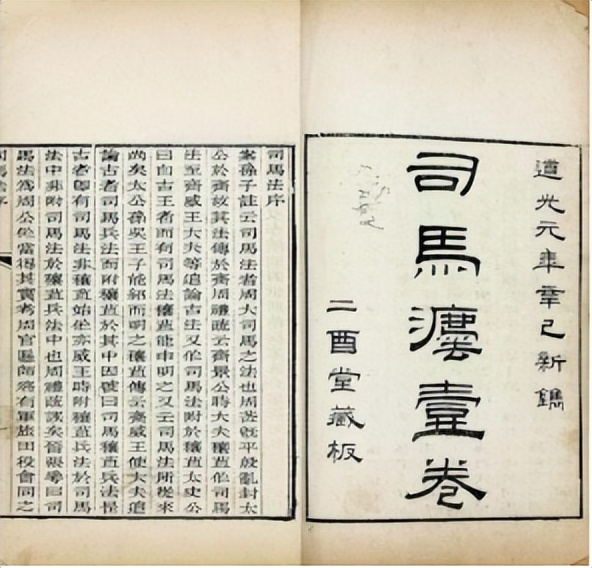 道光元年辛巳新鐫
司馬灋壹卷
二酉堂藏板
司馬法序
案孫子註云司馬法者周大司馬之法也周武既平殷亂封太
公於齊故其法傳於齊周禮疏云齊景公時大夫穰苴作司馬
法至齊威王大夫等追論古法又作司馬法附於穰苴太史公
曰自古王者而有司馬法穰苴能申明之又云司馬法所從來
尚矣太公孫吳王子能紹而明之穰苴傳云齊威王使大夫追
論古者司馬兵法而附穰苴於其中因號曰司馬穰苴兵法是
古者即有司馬法非穰苴始作亦威王時附穰苴兵法於司馬
法中非附司馬法於穰苴兵法中也周禮疏誤矣晉張華曰司
馬法爲周公作當得其實考周官縣師將有軍旅田役會同之